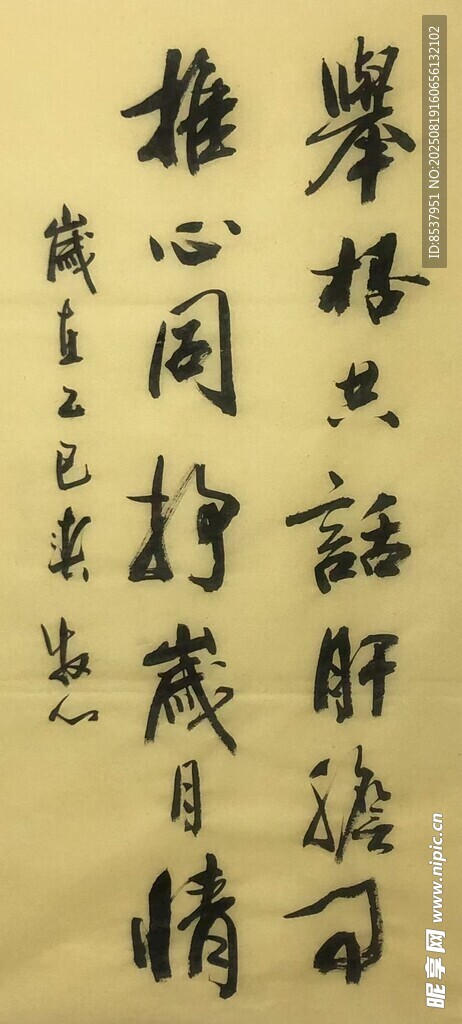 舉杯共話肝膽事
推心同抒歲月情
歲在乙巳 牧心
ID:8537951 NO:20250819160656132102
昵享网 www.nipic.cn